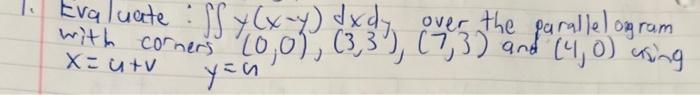 1. Evaluate : ∬ y(x-y) dxdy over the parallelogram
with corners (0,0), (3,3), (7,3) and (4,0) using
x=u+v y=u